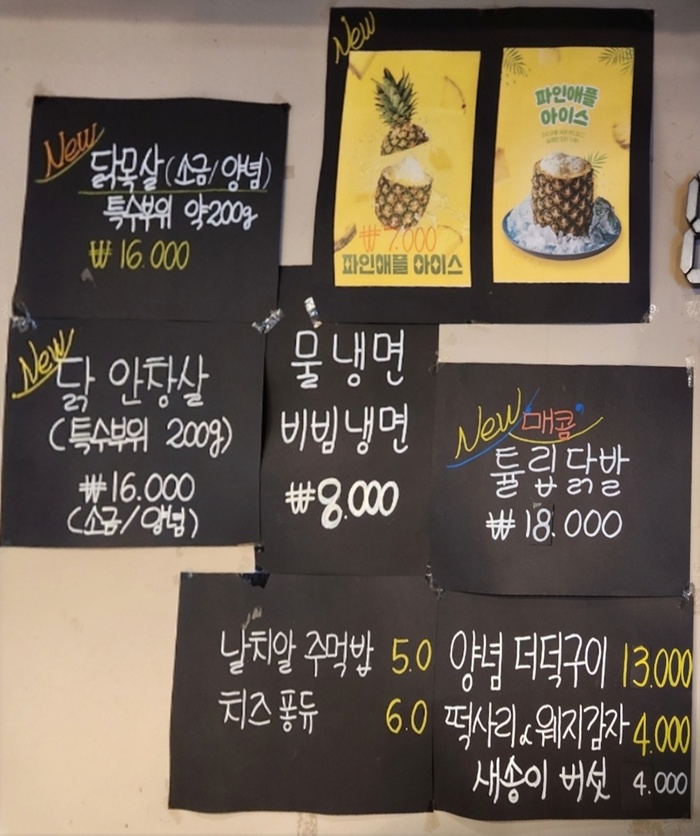 New
닭목살(소금/양념)
특수부위 약200g
₩ 16.000
New
₩ 7.000
파인애플 아이스
파인애플
아이스
New
닭 안창살
(특수부위 200g)
₩16.000
(소금/양념)
물냉면
비빔냉면
₩8.000
New "매콤"
튤립닭발
₩ 18.000
날치알 주먹밥 5.0
치즈 퐁듀 6.0
양념 더덕구이 13.000
떡사리&웨지감자 4.000
새송이 버섯 4.000